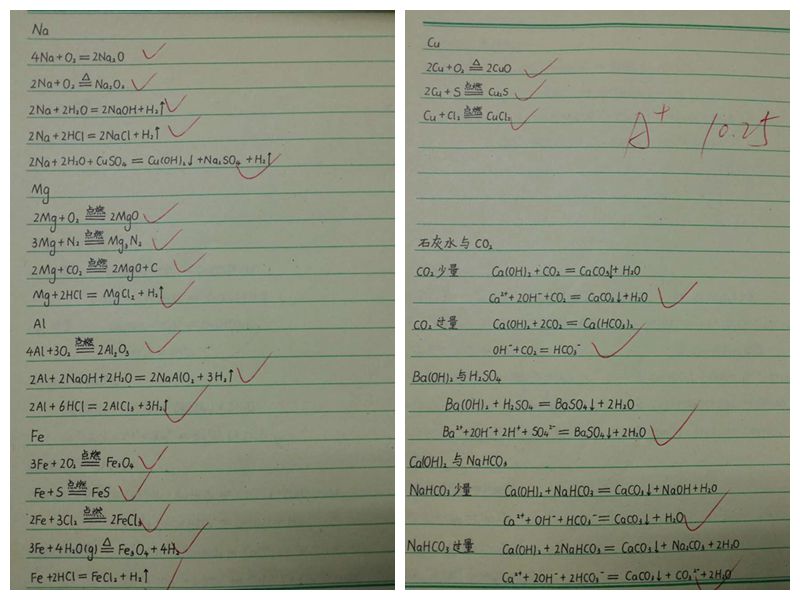 Na
4Na+O₂=2Na₂O
2Na+O₂ ≜ Na₂O₂
2Na+2H₂O=2NaOH+H₂↑
2Na+2HCl=2NaCl+H₂↑
2Na+2H₂O+CuSO₄=Cu(OH)₂↓+Na₂SO₄+H₂↑
Mg
2Mg+O₂ 点燃== 2MgO
3Mg+N₂ 点燃== Mg₃N₂
2Mg+CO₂ 点燃== 2MgO+C
Mg+2HCl=MgCl₂+H₂↑
Al
4Al+3O₂ 点燃== 2Al₂O₃
2Al+2NaOH+2H₂O=2NaAlO₂+3H₂↑
2Al+6HCl=2AlCl₃+3H₂↑
Fe
3Fe+2O₂ 点燃== Fe₃O₄
Fe+S 点燃== FeS
2Fe+3Cl₂ 点燃== 2FeCl₃
3Fe+4H₂O(g) ≜ Fe₃O₄+4H₂
Fe+2HCl=FeCl₂+H₂↑
Cu
2Cu+O₂ ≜ 2CuO
2Cu+S 点燃== Cu₂S
Cu+Cl₂ 点燃== CuCl₂
A⁺ 10.25
石灰水与CO₂
CO₂少量 Ca(OH)₂+CO₂=CaCO₃↓+H₂O
Ca²⁺+2OH⁻+CO₂=CaCO₃↓+H₂O
CO₂过量 Ca(OH)₂+2CO₂=Ca(HCO₃)₂
OH⁻+CO₂=HCO₃⁻
Ba(OH)₂与H₂SO₄
Ba(OH)₂+H₂SO₄=BaSO₄↓+2H₂O
Ba²⁺+2OH⁻+2H⁺+SO₄²⁻=BaSO₄↓+2H₂O
Ca(OH)₂与NaHCO₃
NaHCO₃少量 Ca(OH)₂+NaHCO₃=CaCO₃↓+NaOH+H₂O
Ca²⁺+OH⁻+HCO₃⁻=CaCO₃↓+H₂O
NaHCO₃过量 Ca(OH)₂+2NaHCO₃=CaCO₃↓+Na₂CO₃+2H₂O
Ca²⁺+2OH⁻+2HCO₃⁻=CaCO₃↓+CO₃²⁻+2H₂O